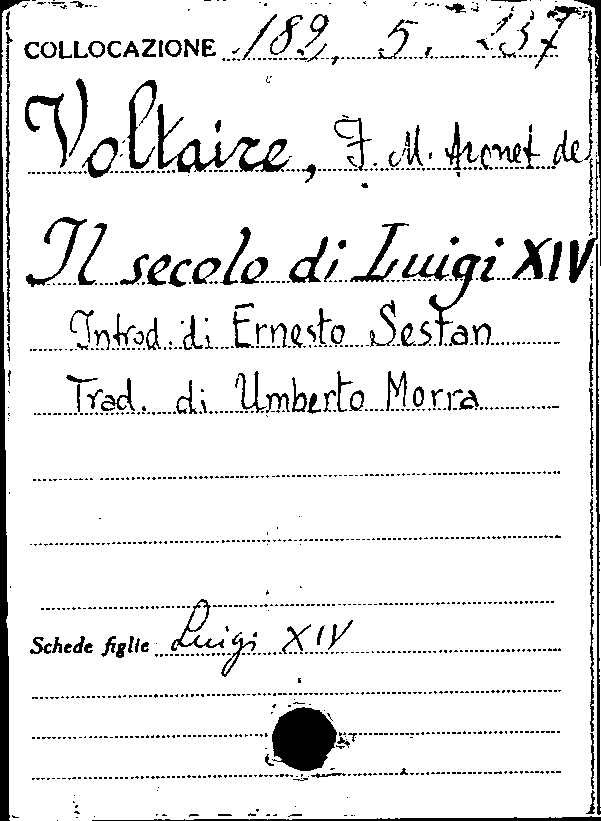 COLLOCAZIONE 182. 5. 237
Voltaire, F. M. Aronet de
Il secolo di Luigi XIV
Introd. di Ernesto Sestan
Trad. di Umberto Morra
Schede figlie Luigi XIV